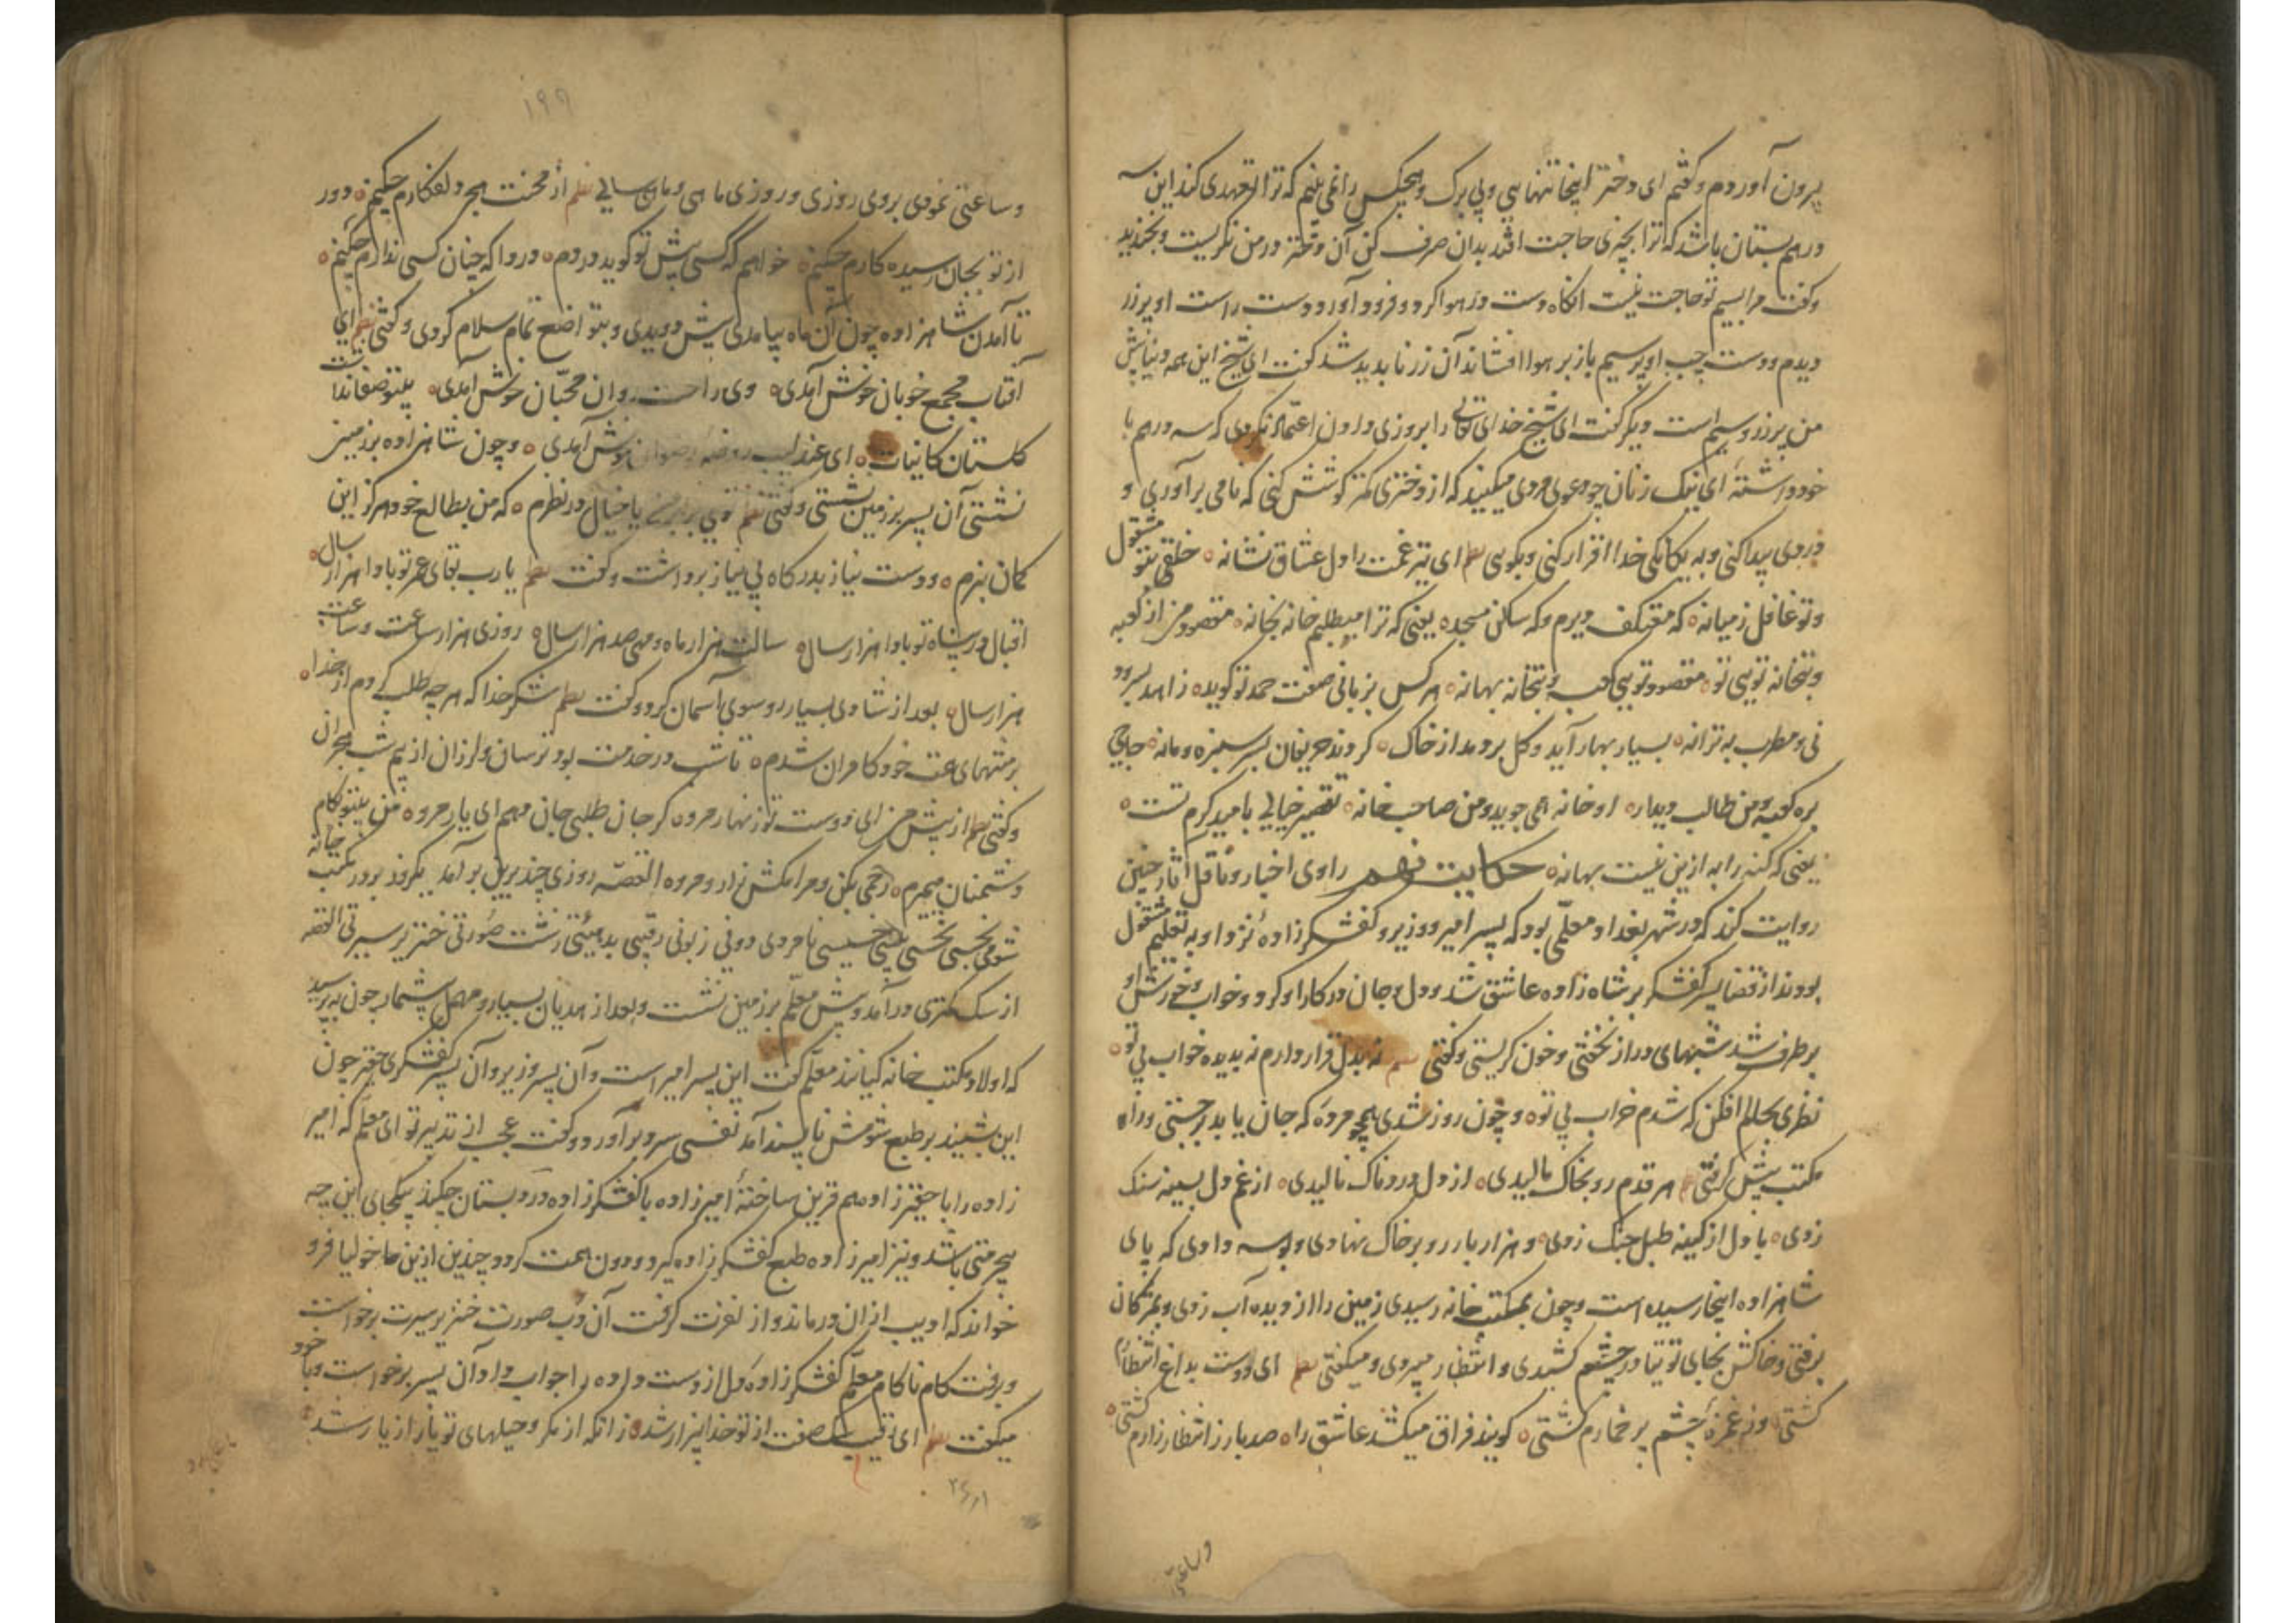 بیرون آوردم و گفتم ای دختر اینجا تنهایی و بی برک و هیچکس را نمی بینم که ترا تعهدی کند این سه
درهم بستان باشد که ترا بچیزی حاجت افتد بدان صرف کن آن دختر در من نگریست و بخندید
و گفت مرا بسیم تو حاجت نیست آنگاه دست در هوا کرد و فرود آورد دست راست او پر زر
دیدم و دست چپ او پر سیم باز بر هوا افشاند آن زر ناپدید شد گفت ای شیخ این همه دنیا پیش
من پر زر و سیم است دیگر گفت ای شیخ خدای تعالی را بروزی دادن اعتماد نکردی که سه درهم با
خود داشته ای نیک زنان چو دعوی مردی میکنید که از دختری کمتر کوشش کنی که نامی برآوری و
دردی پیدا کنی و به یکانکی خدا اقرار کنی و بگویی نظم ای تیر غمت را دل عشاق نشانه خلقی بتو مشغول
و تو غافل ز میانه که معتکف دیرم و که ساکن مسجد یعنی که ترا میطلبم خانه بخانه مقصود من از کعبه
و بتخانه تویی تو مقصود تویی کعبه و بتخانه بهانه هر کس بزبانی صفت حمد تو گوید زاهد بسرود
نی و مطرب به ترانه بسیار بهار آید و گل بر دمد از خاک کردند حریفان بسر سبزه و مانه حاجی
بره کعبه و من طالب دیدار او خانه همی جوید و من صاحب خانه تقصیر خیالی بامید کرم تست
یعنی که گنه را به ازین نیست بهانه حکایت نهم راوی اخبار و ناقل آثار چنین
روایت کند که در شهر بغداد معلّمی بود که پسر امیر و وزیر و کفشگرزاده نزد او به تعلیم مشغول
بودند از قضا پسر کفشگر بر شاه زاده عاشق شد و دل و جان در کار او کرد و خواب و خورش او
بر طرف شد شبهای دراز نخفتی و خون گریستی و گفتی نظم نه بدل قرار دارم نه بدیده خواب بی تو
نظری بحالم افکن که شدم خراب بی تو و چون روز شدی همچو مرده که جان یابد برجستی و راه
مکتب پیش گرفتی هر قدم رو بخاک مالیدی از دل دردناک نالیدی از غم دل بسینه سنک
زدی با دل از کینه طبل جنک زدی و هزار بار رو بر خاک نهادی و بوسه دادی که پای
شاهزاده اینجا رسیده است و چون بمکتب خانه رسیدی زمین را از دیده آب زدی و بمژکان
برفتی و خاکش بجای توتیا در چشم کشیدی و انتظار میبردی و میگفتی نظم ای دوست بداغ انتظارم
کشتی وز غمزه چشم پر خمارم کشتی گویند فراق میکشد عاشق را صد بار ز انتظار زارم کشتی
وساعتی
۱۹۹
و ساعتی نمودی بروی روزی و روزی ماهی و ماهی سالی نظم از محنت هجر دلفکارم چکنم دور
از تو بجان رسیده کارم چکنم خواهم که کسی پیش تو گوید دردم دردا که چنان کسی ندارم چکنم
تا آمدن شاهزاده چون آن ماه بیامدی پیش دویدی و بتواضع تمام سلام کردی و گفتی نظم ای
آفتاب مجمع خوبان خوش آمدی وی راحت روان محبّان خوش آمدی بیتو صفا نداشت
گلستان کائنات ای عندلیب روضه رضوان خوش آمدی و چون شاهزاده بر زمین
نشستی آن پسر بر زمین نشستی و گفتی نظم تویی برابر من یا خیال در نظرم که من بطالع خود هرگز این
گمان نبرم و دست نیاز بدرگاه بی نیاز برداشت و گفت نظم یا رب بقای عمر تو بادا هزار سال
اقبال در پناه تو بادا هزار سال سالت هزار ماه و مهی صد هزار سال روزی هزار ساعت و ساعت
هزار سال بعد از شادی بسیار رو سوی آسمان کرد و گفت نظم شکر خدا که هر چه طلب کردم از خدا
بر منتهای همت خود کامران شدم تا شب در خدمت بود ترسان و لرزان از بیم شب هجران
و گفتی نظم از پیش من ای دوست تو زنهار مرو گر جان طلبی جان دهم ای یار مرو من بیتو بکام
دشمنان میمیرم رحمی بکن و مرا مکش زار و مرو القصّه روزی چند برین بر آمد یکروز بر در مکتب خانه
شومی نجسی نحسی خسیسی نامردی دونی زبونی رقیبی بد هیئتی زشت صورتی خنزیر سیرتی القصه
از سک کمتری درآمد و پیش معلّم بر زمین نشست و بعد از هذیان بسیار و مهمل بیشمار چون بپرسید
که اولاد مکتب خانه کیانند معلّم گفت این پسر امیر است و آن پسر وزیر و آن پسر کفشگری حقیر چون
این بشنید بر طبع شومش ناپسند آمد نفسی سرد برآورد و گفت عجب از تدبیر تو ای معلّم که امیر
زاده را با حقیرزاده هم قرین ساختهٔ امیرزاده با کفشگرزاده در دبستان چکند یکجای این چه
بیحرمتی باشد و نیز امیرزاده طبع کفشگرزاده گیرد و دون همت گردد چندین ازین ماخولیا فرو
خواند که ادیب از آن درماند و از نفرت گرفت آن دب صورت خنزیر سیرت برخواست
و برفت کام ناکام معلّم کفشگرزاده دل از دست داده را جواب داد آن پسر برخواست و با خود
میگفت نظم ای رقیب سک صفت از تو خدا بیزار شد زانکه از مکر و حیلهای تو یار از یار شد